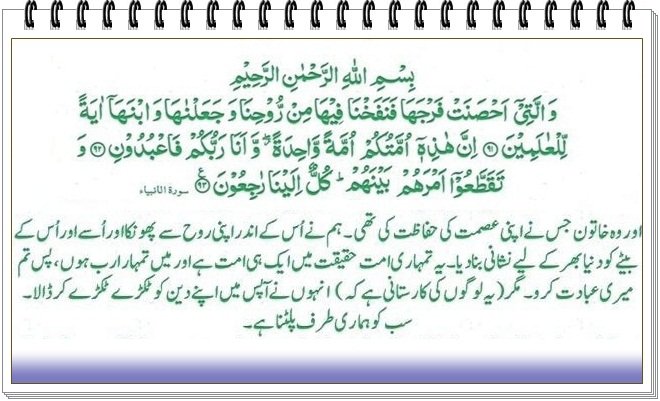 بِسْمِ اللهِ الرَّحْمٰنِ الرَّحِيْمِ
وَالَّتِيْٓ اَحْصَنَتْ فَرْجَهَا فَنَفَخْنَا فِيْهَا مِنْ رُّوْحِنَا وَ جَعَلْنٰهَا وَ ابْنَهَآ اٰيَةً
لِّلْعٰلَمِيْنَ ﴿۹۱﴾ اِنَّ هٰذِهٖٓ اُمَّتُكُمْ اُمَّةً وَّاحِدَةً ۖ وَّ اَنَا رَبُّكُمْ فَاعْبُدُوْنِ ﴿۹۲﴾ وَ
تَقَطَّعُوْٓا اَمْرَهُمْ بَيْنَهُمْ ؕ كُلٌّ اِلَيْنَا رٰجِعُوْنَ ﴿۹۳﴾ۧ سورة الانبياء
اور وہ خاتون جس نے اپنی عصمت کی حفاظت کی تھی۔ ہم نے اُس کے اندر اپنی روح سے پھونکا اور اُسے اور اُس کے
بیٹے کو دنیا بھر کے لیے نشانی بنا دیا۔ یہ تمہاری امت حقیقت میں ایک ہی امت ہے اور میں تمہارا رب ہوں، پس تم
میری عبادت کرو۔ مگر (یہ لوگوں کی کارستانی ہے کہ) انہوں نے آپس میں اپنے دین کو ٹکڑے ٹکڑے کر ڈالا۔
سب کو ہماری طرف پلٹنا ہے۔